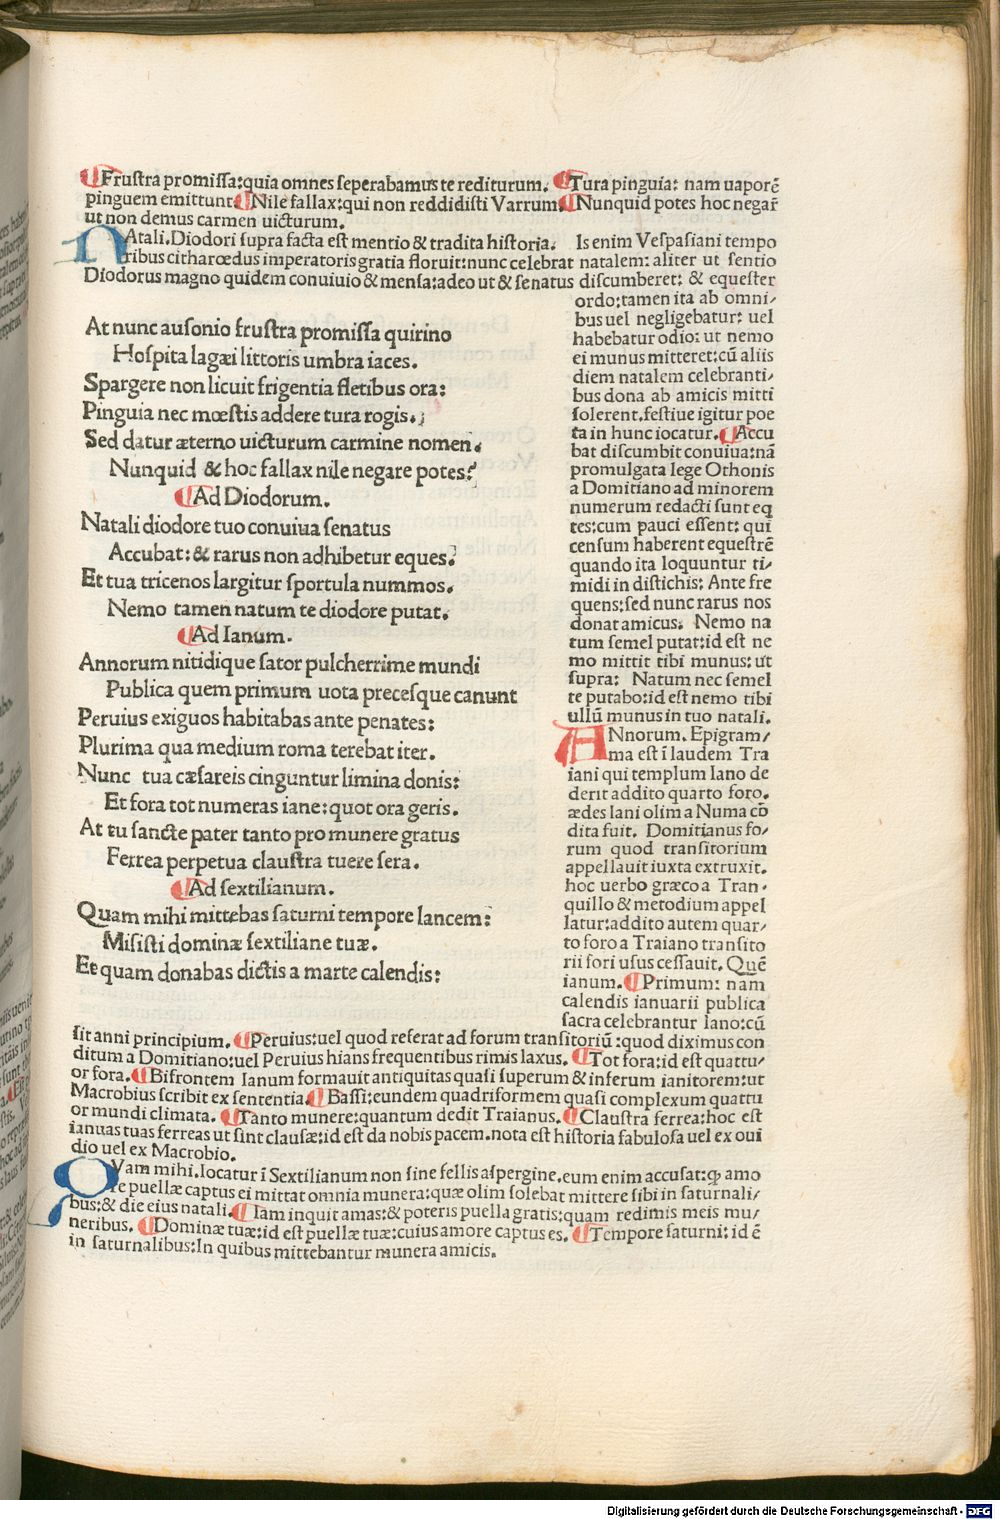 ¶Frustra promissa:quia omnes seperabamus te rediturum. ¶Tura pinguia: nam uaporē
pinguem emittunt¶Nile fallax:qui non reddidisti Varrum.¶Nunquid potes hoc negar̄
ut non demus carmen uicturum.
NAtali.Diodori supra facta est mentio & tradita historia. Is enim Vespasiani tempo
ribus citharœdus imperatoris gratia floruit:nunc celebrat natalem: aliter ut sentio
Diodorus magno quidem conuiuio & mensa:adeo ut & senatus discumberet: & equester
At nunc ausonio frustra promissa quirino
Hospita lagæi littoris umbra iaces.
Spargere non licuit frigentia fletibus ora:
Pinguia nec mœstis addere tura rogis.
Sed datur æterno uicturum carmine nomen.
Nunquid & hoc fallax nile negare potes?
¶Ad Diodorum.
Natali diodore tuo conuiua senatus
Accubat: & rarus non adhibetur eques?
Et tua tricenos largitur sportula nummos.
Nemo tamen natum te diodore putat.
¶Ad Ianum.
Annorum nitidique sator pulcherrime mundi
Publica quem primum uota precesque canunt
Peruius exiguos habitabas ante penates:
Plurima qua medium roma terebat iter.
Nunc tua cæsareis cinguntur limina donis:
Et fora tot numeras iane:quot ora geris.
At tu sancte pater tanto pro munere gratus
Ferrea perpetua claustra tuere sera.
¶Ad sextilianum.
Quam mihi mittebas saturni tempore lancem:
Misisti dominæ sextiliane tuæ.
Et quam donabas dictis a marte calendis:
ordo:tamen ita ab omni/
bus uel negligebatur: uel
habebatur odio: ut nemo
ei munus mitteret:cū aliis
diem natalem celebranti/
bus dona ab amicis mitti
solerent.festiue igitur poe
ta in hunc iocatur.¶Accu
bat discumbit conuiua:nā
promulgata lege Othonis
a Domitiano ad minorem
numerum redacti sunt eq
tes:cum pauci essent: qui
censum haberent equestrē
quando ita loquuntur ti/
midi in distichis: Ante fre
quens:sed nunc rarus nos
donat amicus. Nemo na
tum semel putat:id est ne
mo mittit tibi munus: ut
supra: Natum nec semel
te putabo:id est nemo tibi
ullū munus in tuo natali.
ANnorum. Epigram/
ma est ī laudem Tra
iani qui templum Iano de
derit addito quarto foro.
ædes Iani olim a Numa cō
dita fuit. Domitianus fo/
rum quod transitorium
appellauit iuxta extruxit.
hoc uerbo græco a Tran.
quillo & metodium appel
latur:addito autem quar/
to foro a Traiano transito
rii fori usus cessauit. Quē
ianum. ¶Primum: nam
calendis ianuarii publica
sacra celebrantur Iano:cū
sit anni principium. ¶Peruius:uel quod referat ad forum transitoriū :quod diximus con
ditum a Domitiano:uel Peruius hians frequentibus rimis laxus. ¶Tot fora:id est quattu/
or fora.¶Bifrontem Ianum formauit antiquitas quasi superum & inferum ianitorem:ut
Macrobius scribit ex sententia.¶Bassi:eundem quadriformem quasi complexum quattu
or mundi climata. ¶Tanto munere:quantum dedit Traianus. ¶Claustra ferrea:hoc est
ianuas tuas ferreas ut sint clausæ:id est da nobis pacem.nota est historia fabulosa uel ex oui
dio uel ex Macrobio.
QVam mihi.Iocatur ī Sextilianum non sine fellis aspergine.eum enim accusat:ꝙ amo
re puellæ captus ei mittat omnia munera:quæ olim solebat mittere sibi in saturnali/
bus:& die eius natali.¶Iam inquit amas:& poteris puella gratis:quam redimis meis mu/
neribus. ¶Dominæ tuæ:id est puellæ tuæ:cuius amore captus es. ¶Tempore saturni: id ē
in saturnalibus:In quibus mittebantur munera amicis.
Digitalisierung gefördert durch die Deutsche Forschungsgemeinschaft - DFG